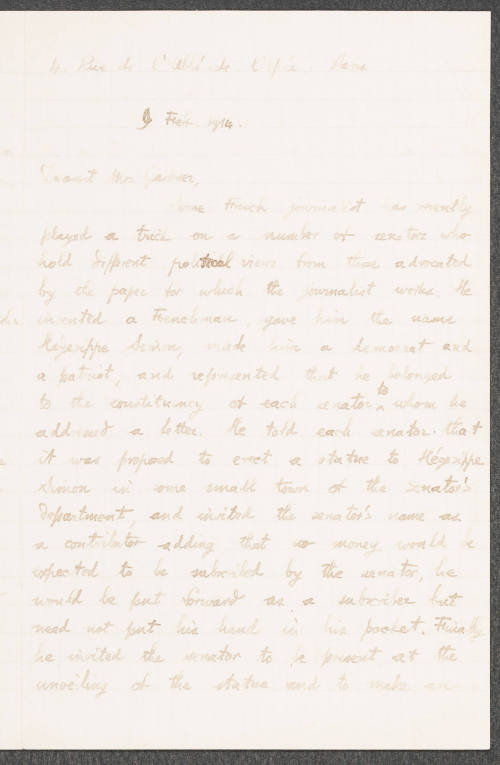 4. Rue de l'Abbé de l'Epée Paris
9 Feb. 1914.
Dearest Mrs Gardner,
Some French journalist has recently
played a trick on a number of senators who
hold different political views from those advocated
by the paper for which the journalist works. He
invented a Frenchman, gave him the name
Hégésippe Simon, made him a democrat and
a patriot, and represented that he belonged
to the constituency of each senator to whom he
addressed a letter. He told each senator that
it was proposed to erect a statue to Hégésippe
Simon in some small town of the senator's
department, and invited the senator's name as
a contributor adding that no money would be
expected to be subscribed by the senator, he
would be put forward as a subscriber but
need not put his hand in his pocket. Finally
he invited the senator to be present at the
unveiling of the statue and to make an